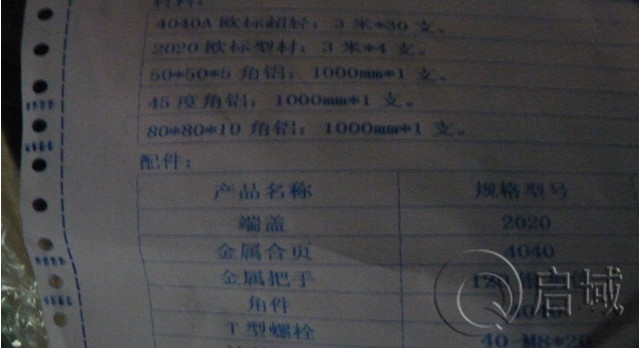 材料：
4040A 欧标超轻：3 米*30 支。
2020 欧标型材：3 米*4 支。
50*50*5 角铝：1000mm*1 支。
45 度角铝：1000mm*1 支。
80*80*10 角铝：1000mm*1 支。
配件：
产品名称 规格型号
端盖 2020
金属合页 4040
金属把手
角件 4040
T 型螺栓 40-M8*20
启域